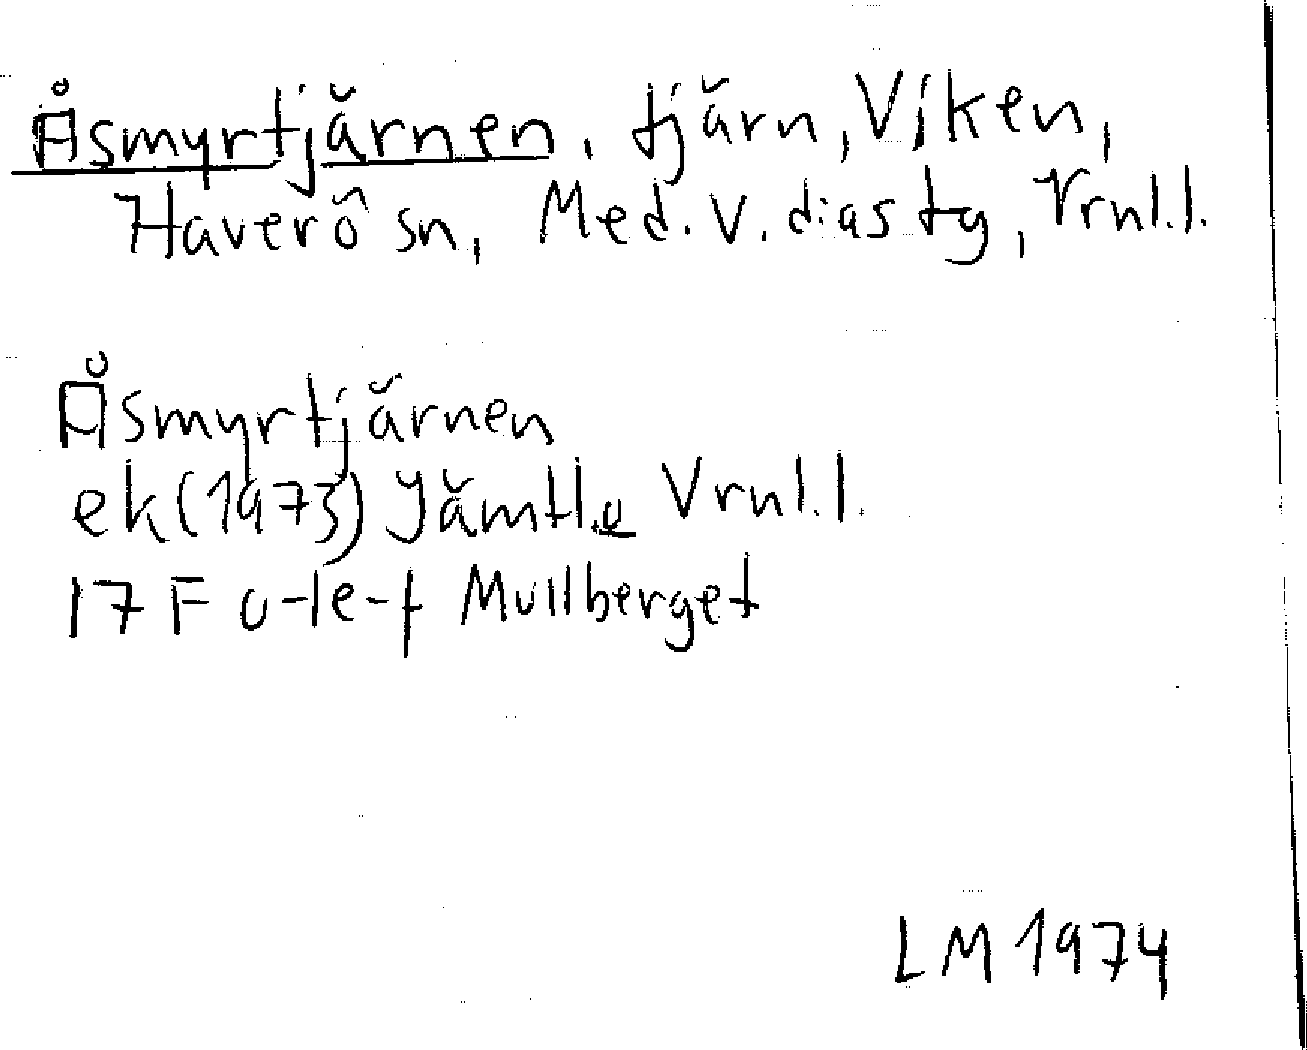 Åsmyrtjärnen, tjärn, Viken,
Haverö sn, Med.v.d:as tg, Vrnl.l.
Åsmyrtjärnen
ek(1973) Jämtl.e Vrnl.l.
17F o-le-f Mullberget
LM 1974